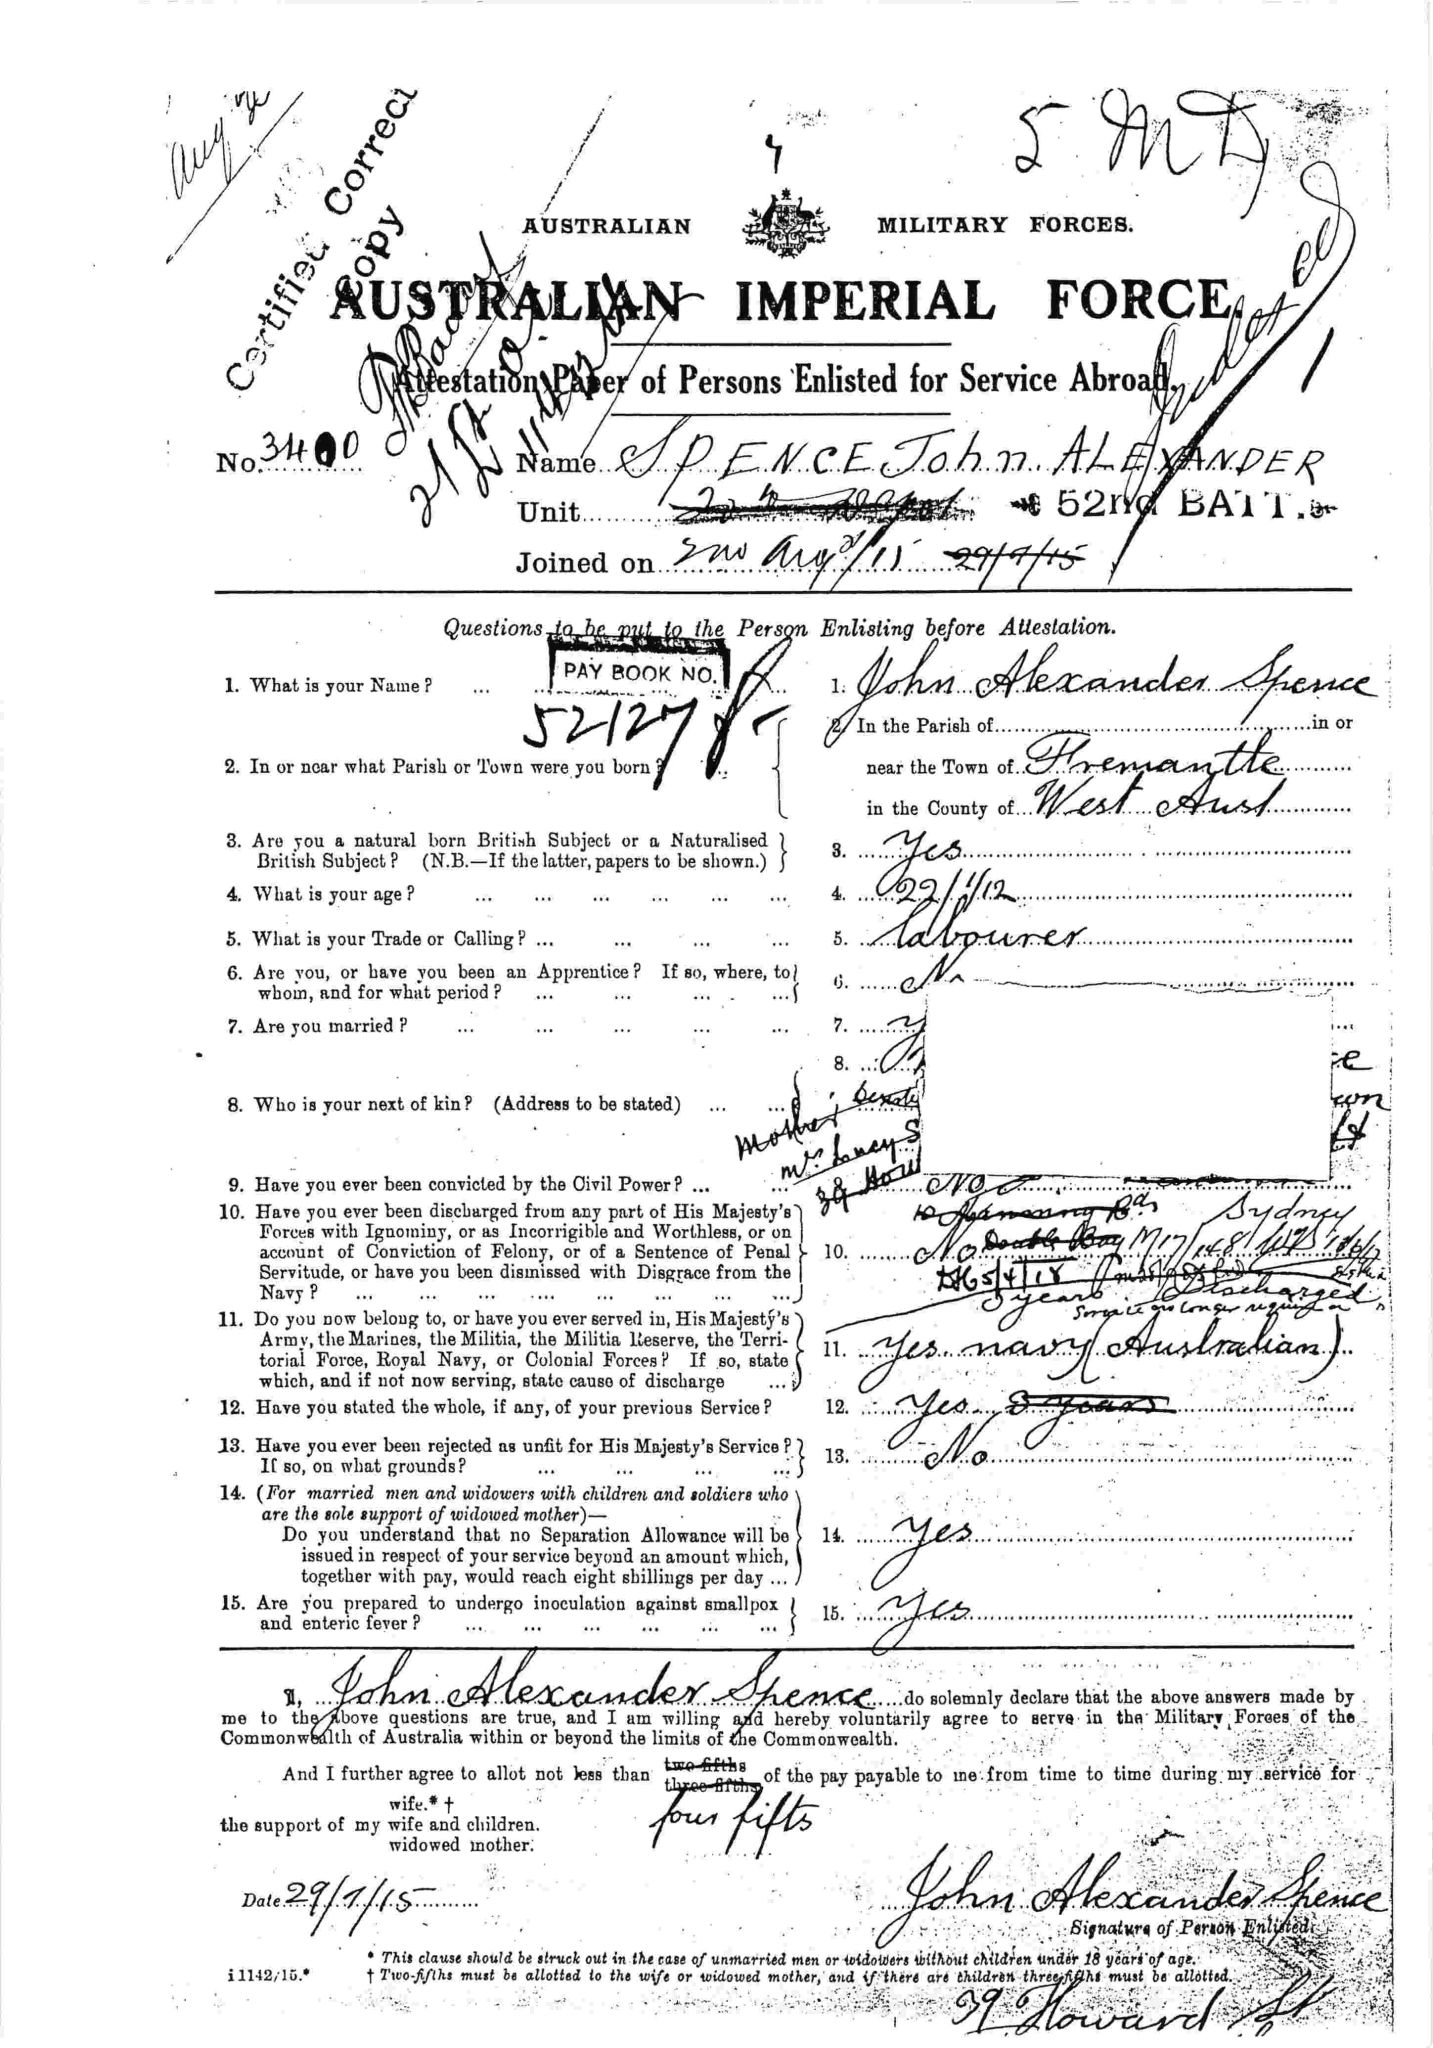 Aug
Certified Correct
Copy
5 MD
AUSTRALIAN MILITARY FORCES.
AUSTRALIAN IMPERIAL FORCE.
Attestation Paper of Persons Enlisted for Service Abroad.
Indexed
No. 3400 Name SPENCE John ALEXANDER
Unit 52nd BATT.
Joined on 2nd Aug /15 29/7/15
Questions to be put to the Person Enlisting before Attestation.
PAY BOOK NO.
52127
1. What is your Name? ... 1. John Alexander Spence
2. In the Parish of in or
2. In or near what Parish or Town were you born? near the Town of Fremantle
in the County of West Aust
3. Are you a natural born British Subject or a Naturalised
British Subject? (N.B.—If the latter, papers to be shown.) 3. Yes
4. What is your age? ... ... ... ... ... ... 4. 22/1/12
5. What is your Trade or Calling? ... ... ... ... 5. labourer
6. Are you, or have you been an Apprentice? If so, where, to
whom, and for what period? ... ... ... ... 6. No
7. Are you married? ... ... ... ... ... 7.
8.
8. Who is your next of kin? (Address to be stated) ... ...
Mother
Mrs Lucy S
39 How
9. Have you ever been convicted by the Civil Power? ... ... No
10. Have you ever been discharged from any part of His Majesty's
Forces with Ignominy, or as Incorrigible and Worthless, or on
account of Conviction of Felony, or of a Sentence of Penal
Servitude, or have you been dismissed with Disgrace from the
Navy? ... ... ... ... ... ... ... ...
Manning Rd Sydney
10. No Double Bay
5/4/18
3 years Discharged
Service no longer required
11. Do you now belong to, or have you ever served in, His Majesty's
Army, the Marines, the Militia, the Militia Reserve, the Terri-
torial Force, Royal Navy, or Colonial Forces? If so, state
which, and if not now serving, state cause of discharge ...
11. Yes navy (Australian)
12. Have you stated the whole, if any, of your previous Service? 12. Yes 3 years
13. Have you ever been rejected as unfit for His Majesty's Service?
If so, on what grounds? ... ... ... ... 13. No
14. (For married men and widowers with children and soldiers who
are the sole support of widowed mother)—
Do you understand that no Separation Allowance will be
issued in respect of your service beyond an amount which,
together with pay, would reach eight shillings per day ...
14. Yes
15. Are you prepared to undergo inoculation against smallpox
and enteric fever? ... ... ... ... ... ... 15. Yes
I, John Alexander Spence do solemnly declare that the above answers made by
me to the above questions are true, and I am willing and hereby voluntarily agree to serve in the Military Forces of the
Commonwealth of Australia within or beyond the limits of the Commonwealth.
And I further agree to allot not less than two-fifths three-fifths of the pay payable to me from time to time during my service for
wife.* †
the support of my wife and children.
widowed mother.
four fifts
Date 29/7/15
John Alexander Spence
Signature of Person Enlisted.
* This clause should be struck out in the case of unmarried men or widowers without children under 18 years of age.
i1142/15.* † Two-fifths must be allotted to the wife or widowed mother, and if there are children three-fifths must be allotted.
39 Howard St